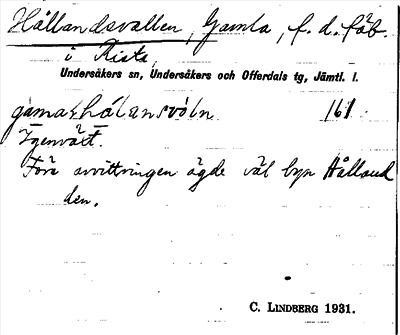 Hållandsvallen, Gamla, f. d. fäb.
i Rista,
Undersåkers sn, Undersåkers och Offerdals tg, Jämtl. l.
hålansvóln 161.
Igenväxt.
Före avvittringen ägde väl byn Hålland
den.
C. LINDBERG 1931.